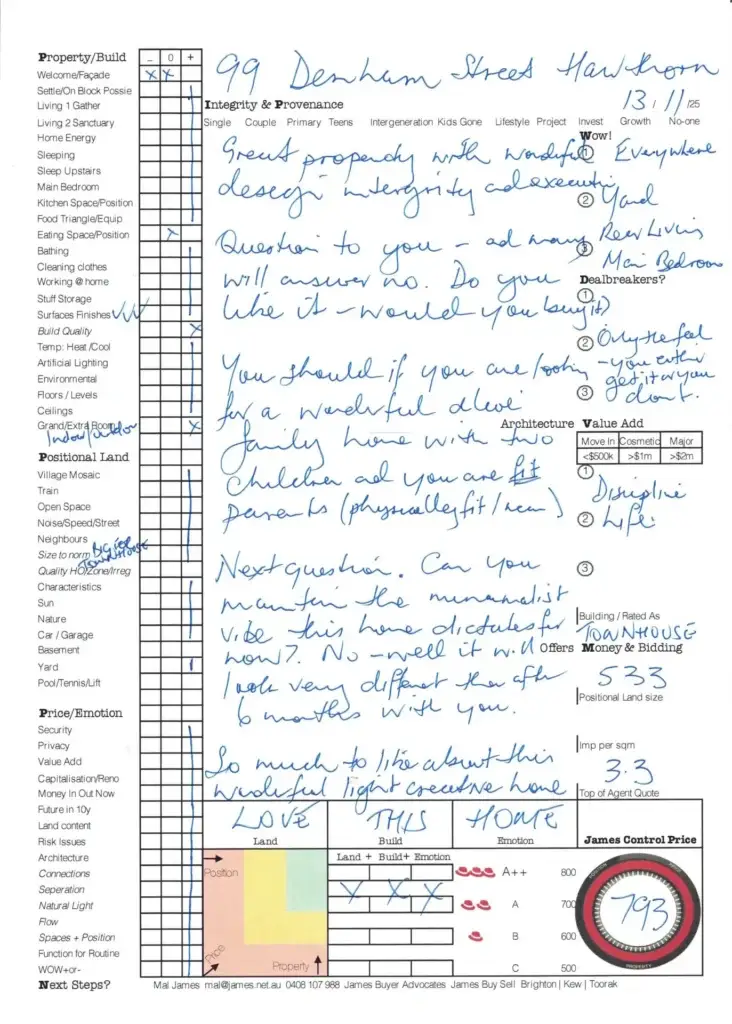 Property/Build - 0 +
99 Denham Street Hawthorn
Welcome/Façade X X
Settle/On Block Possie
13 / 11 /25
Living 1 Gather
Integrity & Provenance
Living 2 Sanctuary
Single Couple Primary Teens Intergeneration Kids Gone Lifestyle Project Invest Growth No-one
Home Energy
Sleeping
Sleep Upstairs
Main Bedroom
Kitchen Space/Position
Food Triangle/Equip
Eating Space/Position X
Bathing
Cleaning clothes
Working @ home
Stuff Storage
Surfaces Finishes
Build Quality X
Temp: Heat /Cool
Artificial Lighting
Environmental
Floors / Levels
Ceilings
Grand/Extra Room X
Indoor/outdoor
Positional Land
Village Mosaic
Train
Open Space
Noise/Speed/Street
Neighbours
Size to norm BIG FOR
TOWNHOUSE
Quality HO/Zone/Irreg
Characteristics
Sun
Nature
Car / Garage
Basement
Yard
Pool/Tennis/Lift
Price/Emotion
Security
Privacy
Value Add
Capitalisation/Reno
Money In Out Now
Future in 10y
Land content
Risk Issues
Architecture
Connections
Seperation
Natural Light
Flow
Spaces + Position
Function for Routine
WOW+or-
Great property with wonderful
design intergrity and executin
Question to you – ad many
will answer no. Do you
like it – would you buy it?
You should if you are looking
for a wonderful
family home with two
children ad you are fit
parents (physically fit /
Next question. Can you
maintain the minimalist
vibe this home dictates for
now? No – well it will
look very different then after
6 months with you.
So much to like about this
wonderful light creative home
Wow!
① Everywhere
② Yard
③ Rear Living
Main Bedroom
Dealbreakers?
①
② Only the feel
– you either
get it or you
③ don't.
Architecture Value Add
Move In Cosmetic Major
<$500k >$1m >$2m
①
Discipline
② Life
③
Building / Rated As
TOWNHOUSE
Offers Money & Bidding
533
Positional Land size
Imp per sqm
3.3
Top of Agent Quote
LOVE THIS HOME
Land Build Emotion James Control Price
Position
Price
Property
Land + Build+ Emotion
X X X
A++ 800
A 700
B 600
C 500
793
PROPERTY
Next Steps? Mal James mal@james.net.au 0408 107 988 James Buyer Advocates James Buy Sell Brighton | Kew | Toorak